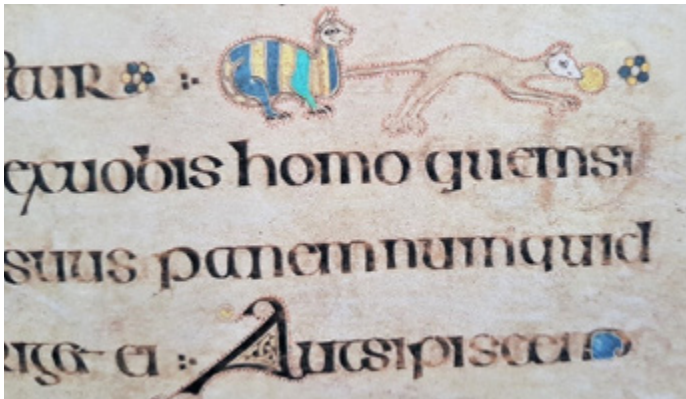 tur
exuobis homo quemsi
suus panemnumquid
riget ei : Autsipiscem